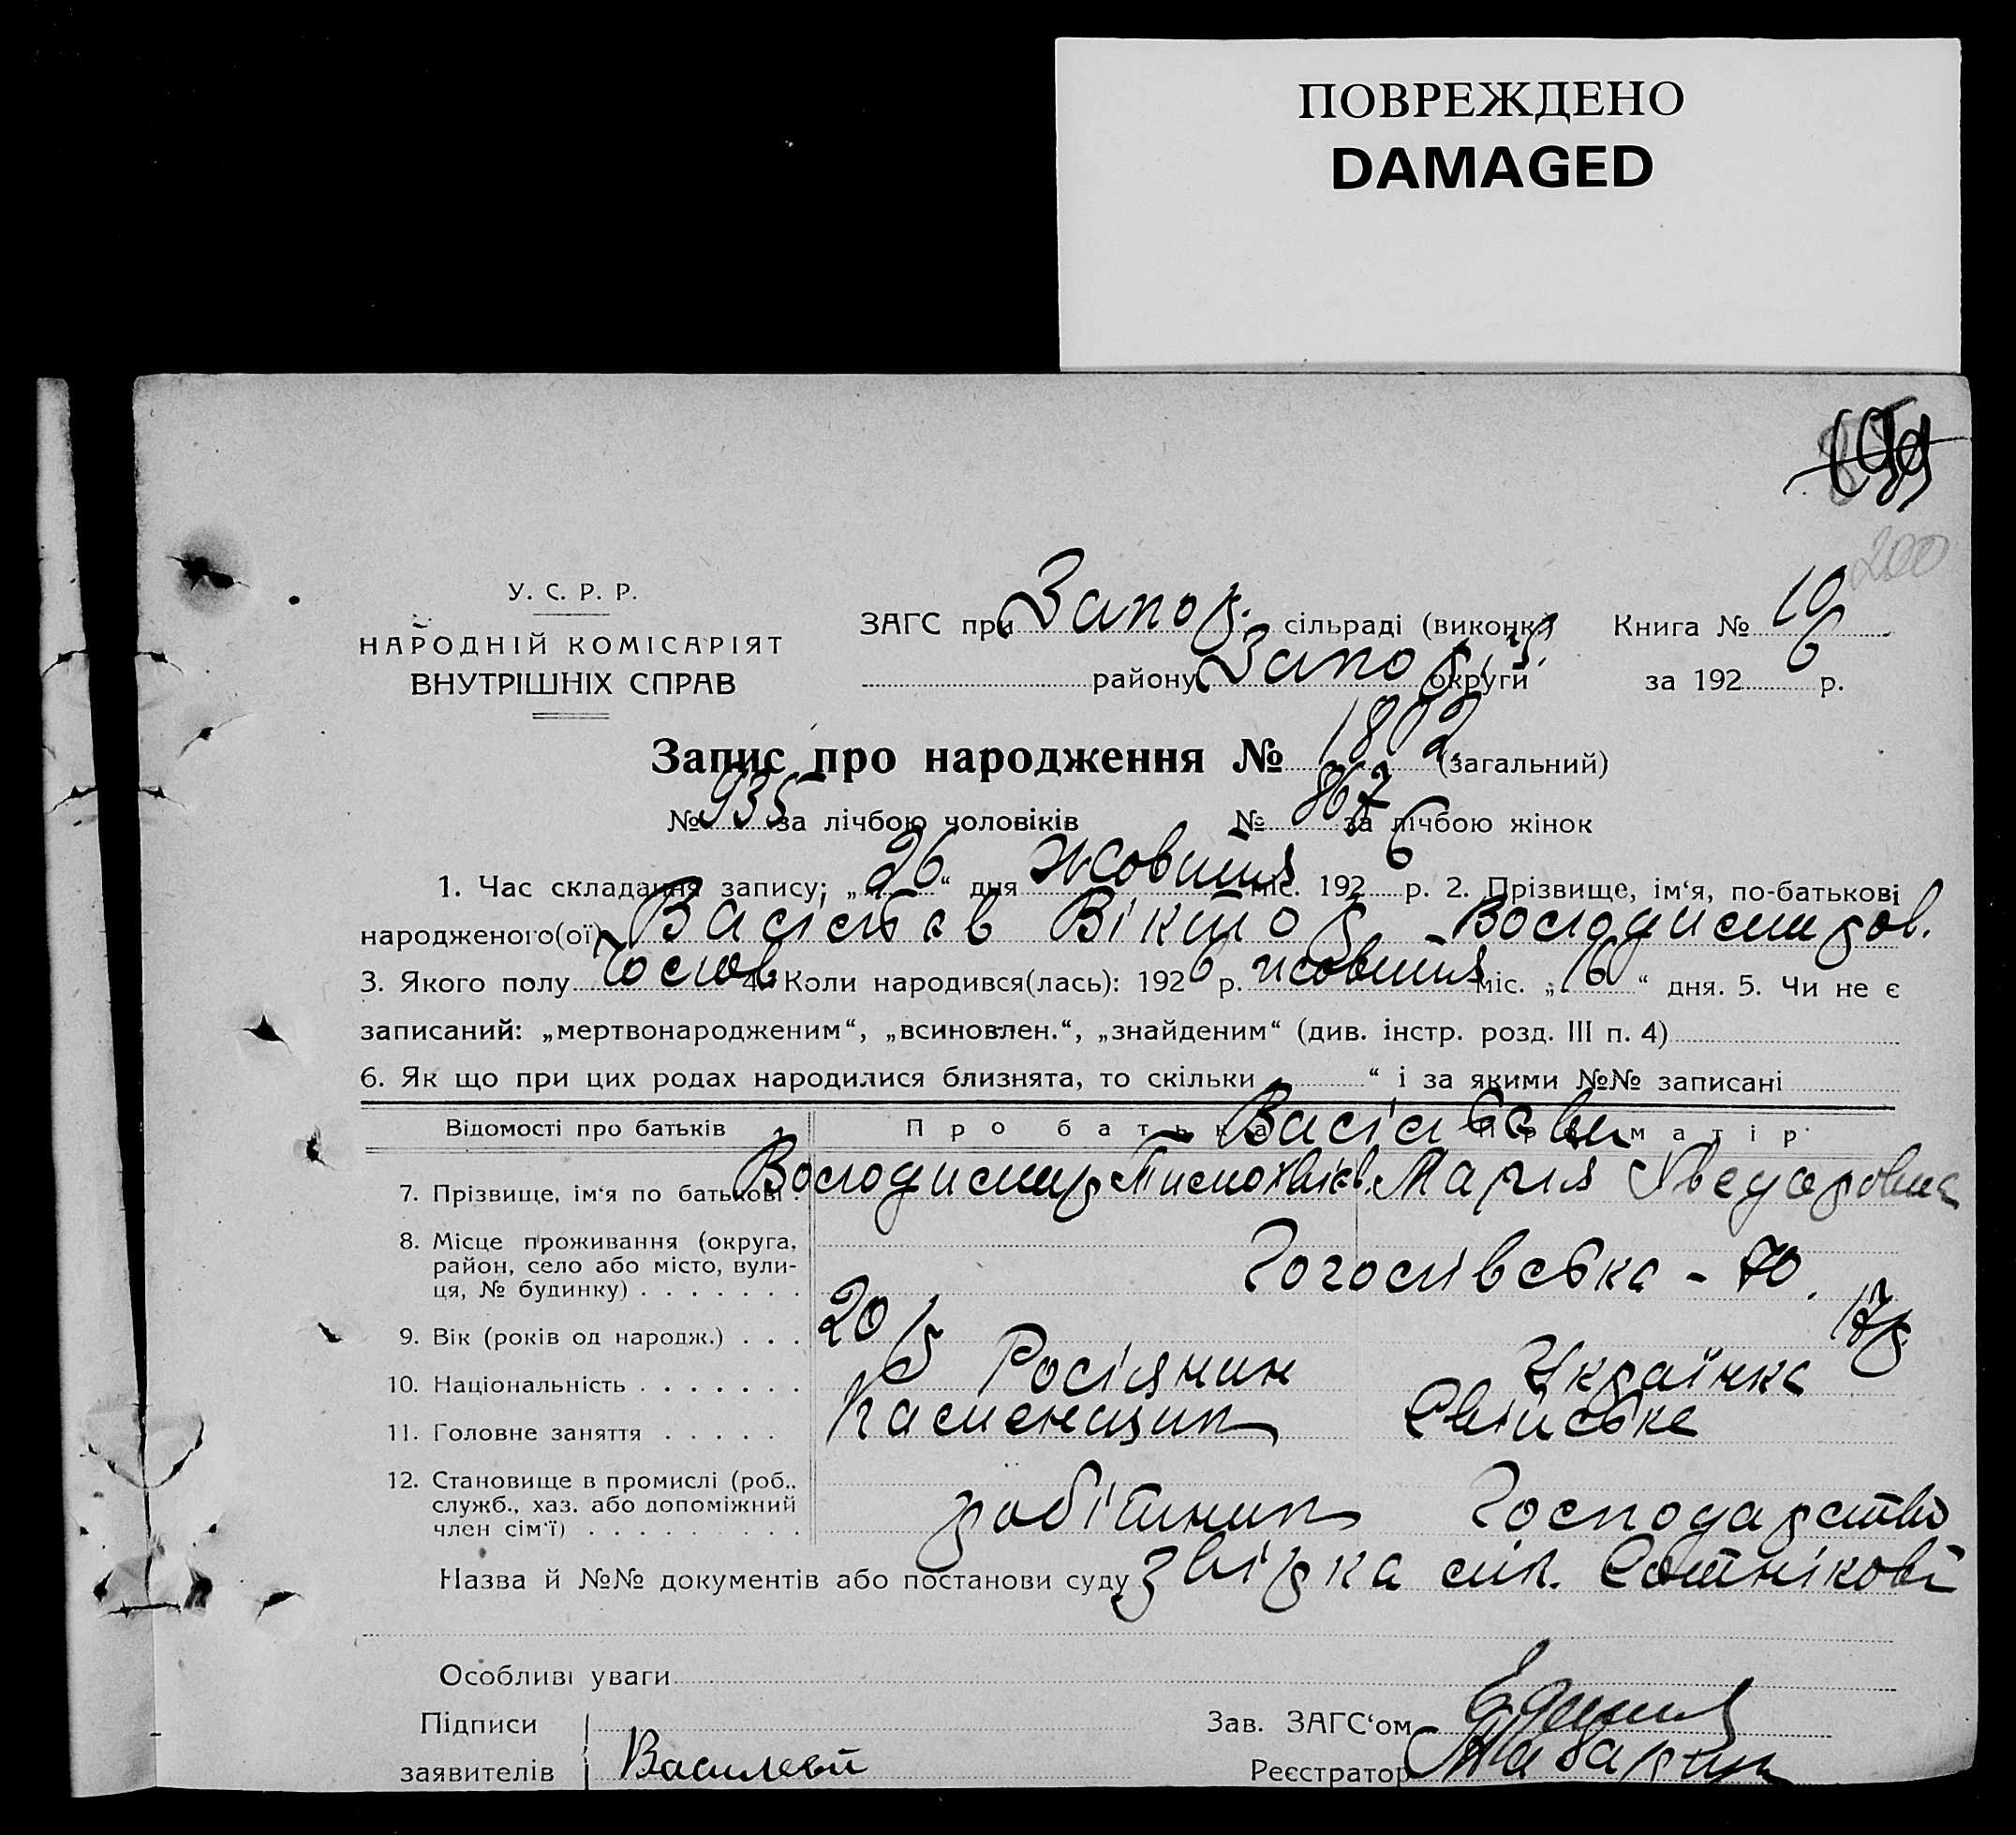 ПОВРЕЖДЕНО
DAMAGED
199
200
У. С. Р. Р.
НАРОДНІЙ КОМІСАРІЯТ
ВНУТРІШНІХ СПРАВ
ЗАГС при Запор. сільраді (виконк.)
району Запор. округи
Книга № 10
за 1926 р.
Запис про народження № 1802 (загальний)
№ 935 за лічбою чоловіків № 867 за лічбою жінок
1. Час складання запису; „26“ дня жовтня міс. 1926 р. 2. Прізвище, ім‘я, по-батькові
народженого(ої) Васільєв Віктор Володимиров.
3. Якого полу чолов. 4. Коли народився(лась): 1926 р. жовтня міс. „16“ дня. 5. Чи не є
записаний: „мертвонародженим“, „всиновлен.“, „знайденим“ (див. інстр. розд. III п. 4)
6. Як що при цих родах народилися близнята, то скільки “ і за якими №№ записані
Відомості про батьків Про батька Про матір
Васільєви
7. Прізвище, ім‘я по батькові Володимир Тимофієв. Марія Хведоровна
8. Місце проживання (округа,
район, село або місто, вули-
ця, № будинку) Гоголівська - 70.
9. Вік (років од народж.) 20 р 17 р.
10. Національність Росіянин Українка
11. Головне заняття Каменщик Сільське
12. Становище в промислі (роб.,
служб., хаз. або допоміжний
член сім‘ї) робітник Господарство
Назва й №№ документів або постанови суду звірка лік. Сотнікові
Особливі уваги
Підписи
заявителів Василєвй
Зав. ЗАГС‘ом
Реєстратор